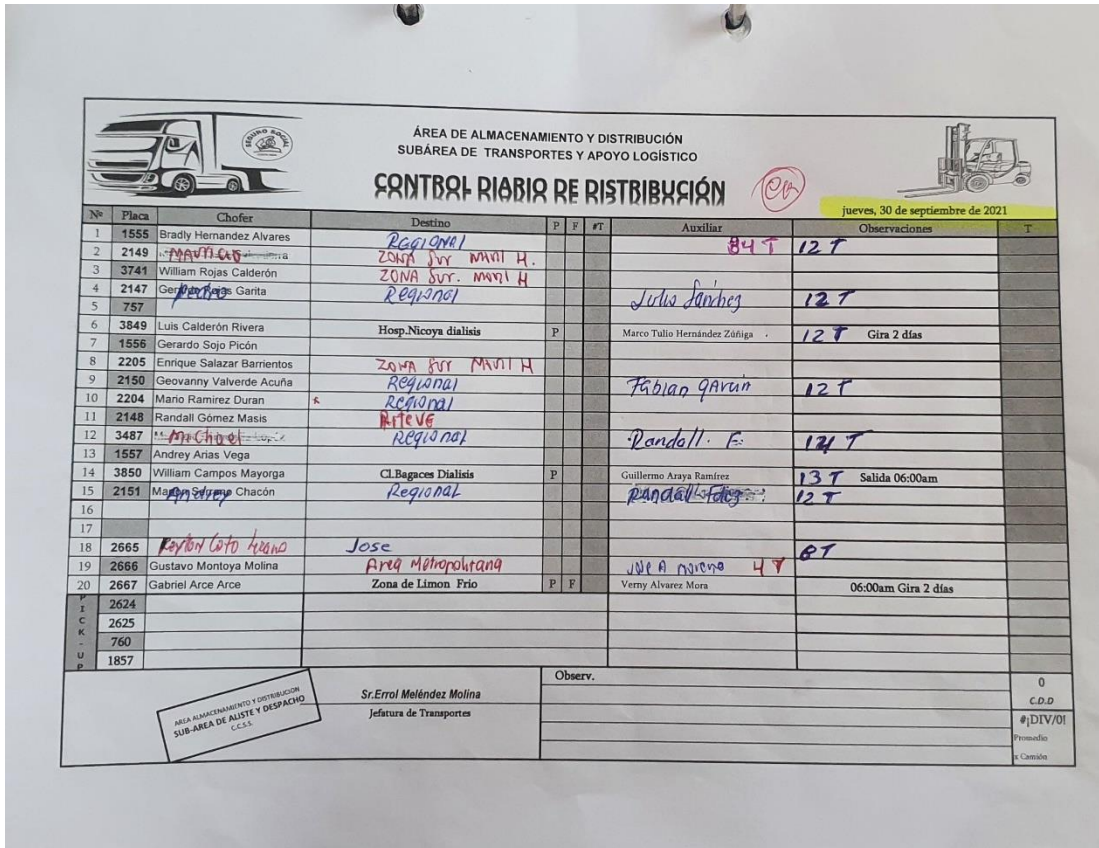 SEGURO SOCIAL
ÁREA DE ALMACENAMIENTO Y DISTRIBUCIÓN
SUBÁREA DE TRANSPORTES Y APOYO LOGÍSTICO
CONTROL DIARIO DE DISTRIBUCIÓN
jueves, 30 de septiembre de 2021
Nº Placa Chofer Destino P F #T Auxiliar Observaciones T
1 1555 Bradly Hernandez Alvares Regional 84 T 12 T
2 2149 Mauricio ZONA SUR MANI H.
3 3741 William Rojas Calderón ZONA SUR. MANI H
4 2147 Pedro Garita Regional Julio Sánchez 12 T
5 757
6 3849 Luis Calderón Rivera Hosp.Nicoya dialisis P Marco Tulio Hernández Zúñiga 12 T Gira 2 días
7 1556 Gerardo Sojo Picón
8 2205 Enrique Salazar Barrientos ZONA SUR MANI H
9 2150 Geovanny Valverde Acuña Regional Fabian Garcia 12 T
10 2204 Mario Ramirez Duran Regional
11 2148 Randall Gómez Masis RITEVE
12 3487 Michael Regional Randall. F. 14 T
13 1557 Andrey Arias Vega
14 3850 William Campos Mayorga Cl.Bagaces Dialisis P Guillermo Araya Ramírez 13 T Salida 06:00am
15 2151 Andrey Chacón Regional Randall Fdez 12 T
16
17
18 2665 Keylor Coto Jose 8T
19 2666 Gustavo Montoya Molina Area Metropolitana Jose A Moreno 4 T
20 2667 Gabriel Arce Arce Zona de Limon Frio P F Verny Alvarez Mora 06:00am Gira 2 días
PICK-UP
2624
2625
760
1857
AREA ALMACENAMIENTO Y DISTRIBUCION
SUB-AREA DE ALISTE Y DESPACHO
C.C.S.S.
Sr.Errol Meléndez Molina
Jefatura de Transportes
Observ.
0
C.D.D
#¡DIV/0!
Promedio
x Camión